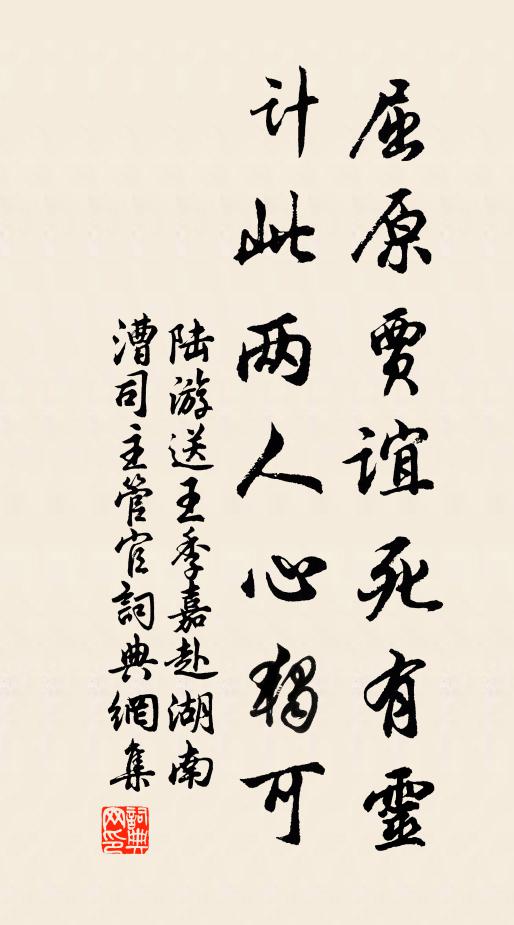 屈原賈誼死有靈
计此两人心獨可
陆游送王季嘉赴湖南
漕司主管官詞典網集
詞典
网印